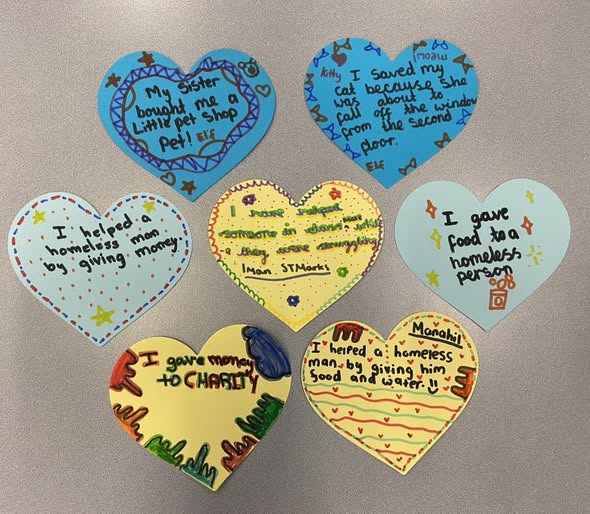 My sister
bought me a
Little pet shop
Pet! Elif
Kitty
meow!
I saved my
cat because she
was about to
fall off the window
from the second
floor.
Elif
I helped a
homeless man
by giving money
I have helped
someone in class
while
they were struggling
Iman STMarks
I gave
food to a
homeless
person
I gave money
to CHARITY
Manahil
I helped a homeless
man by giving him
food and water.